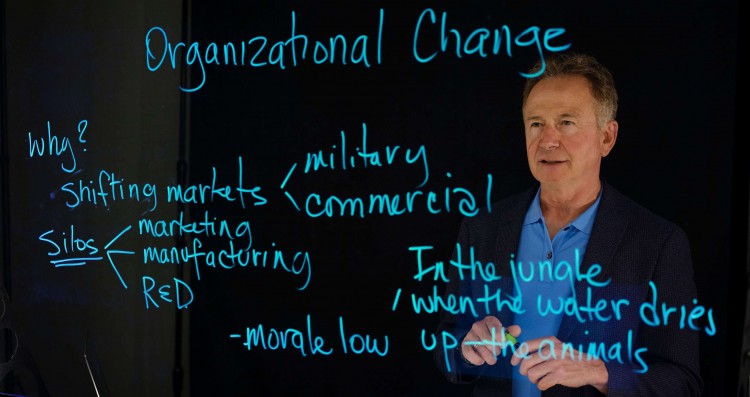 Organizational Change
why?
Shifting markets
military
commercial
Silos
marketing
manufacturing
R&D
-morale low
In the jungle
when the water dries
up - the animals